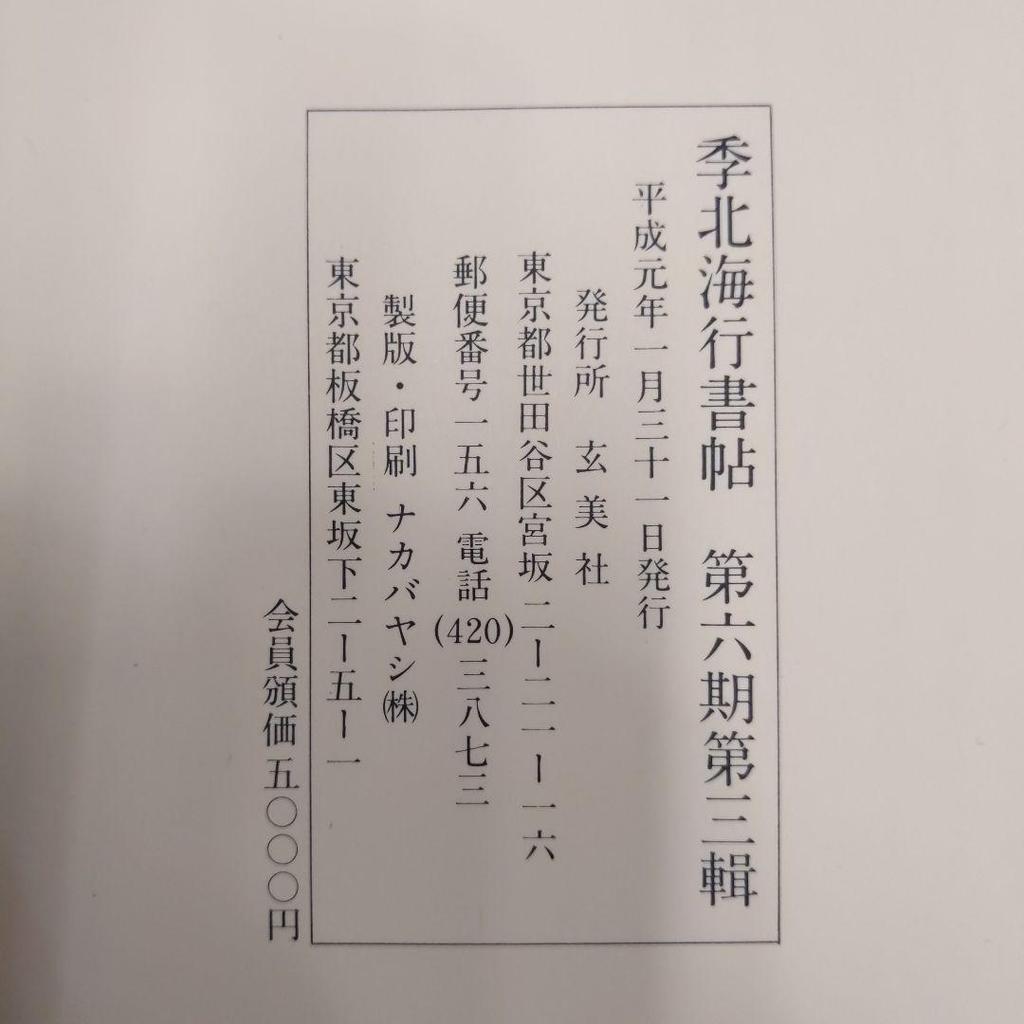 季北海行書帖　第六期第三輯
平成元年一月三十一日発行
発行所　玄美社
東京都世田谷区宮坂二ー二一ー一六
郵便番号一五六 電話(420)三八七三
製版・印刷 ナカバヤシ㈱
東京都板橋区東坂下二ー五ー一
会員頒価 五〇〇〇円